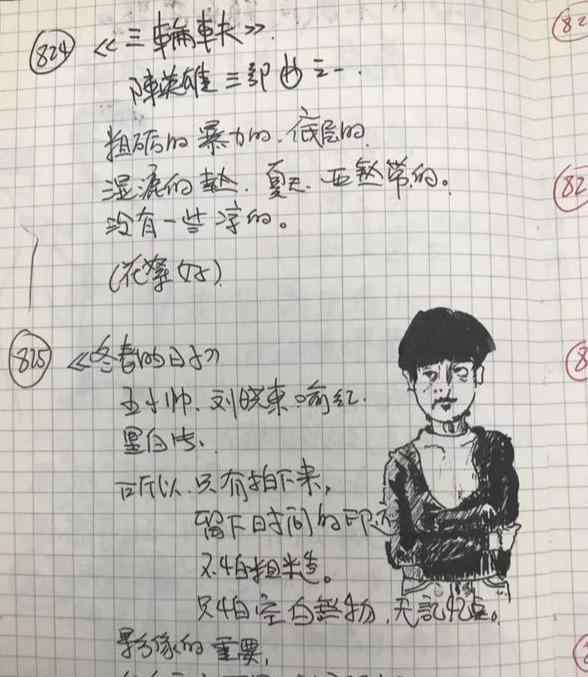 824 《三輪車夫》
陳英雄三部曲之一.
粗砺的 暴力的. 底层的.
湿漉的 熱. 夏天. 亚熱带的。
没有一些凉的。
825 《冬春的日子》
王小帅. 刘晓東. 喻红.
黑白片.
所以. 只有拍下来,
留下时间的印迹
不怕粗糙。
只怕空白無物. 无記忆点。
影像的重要,